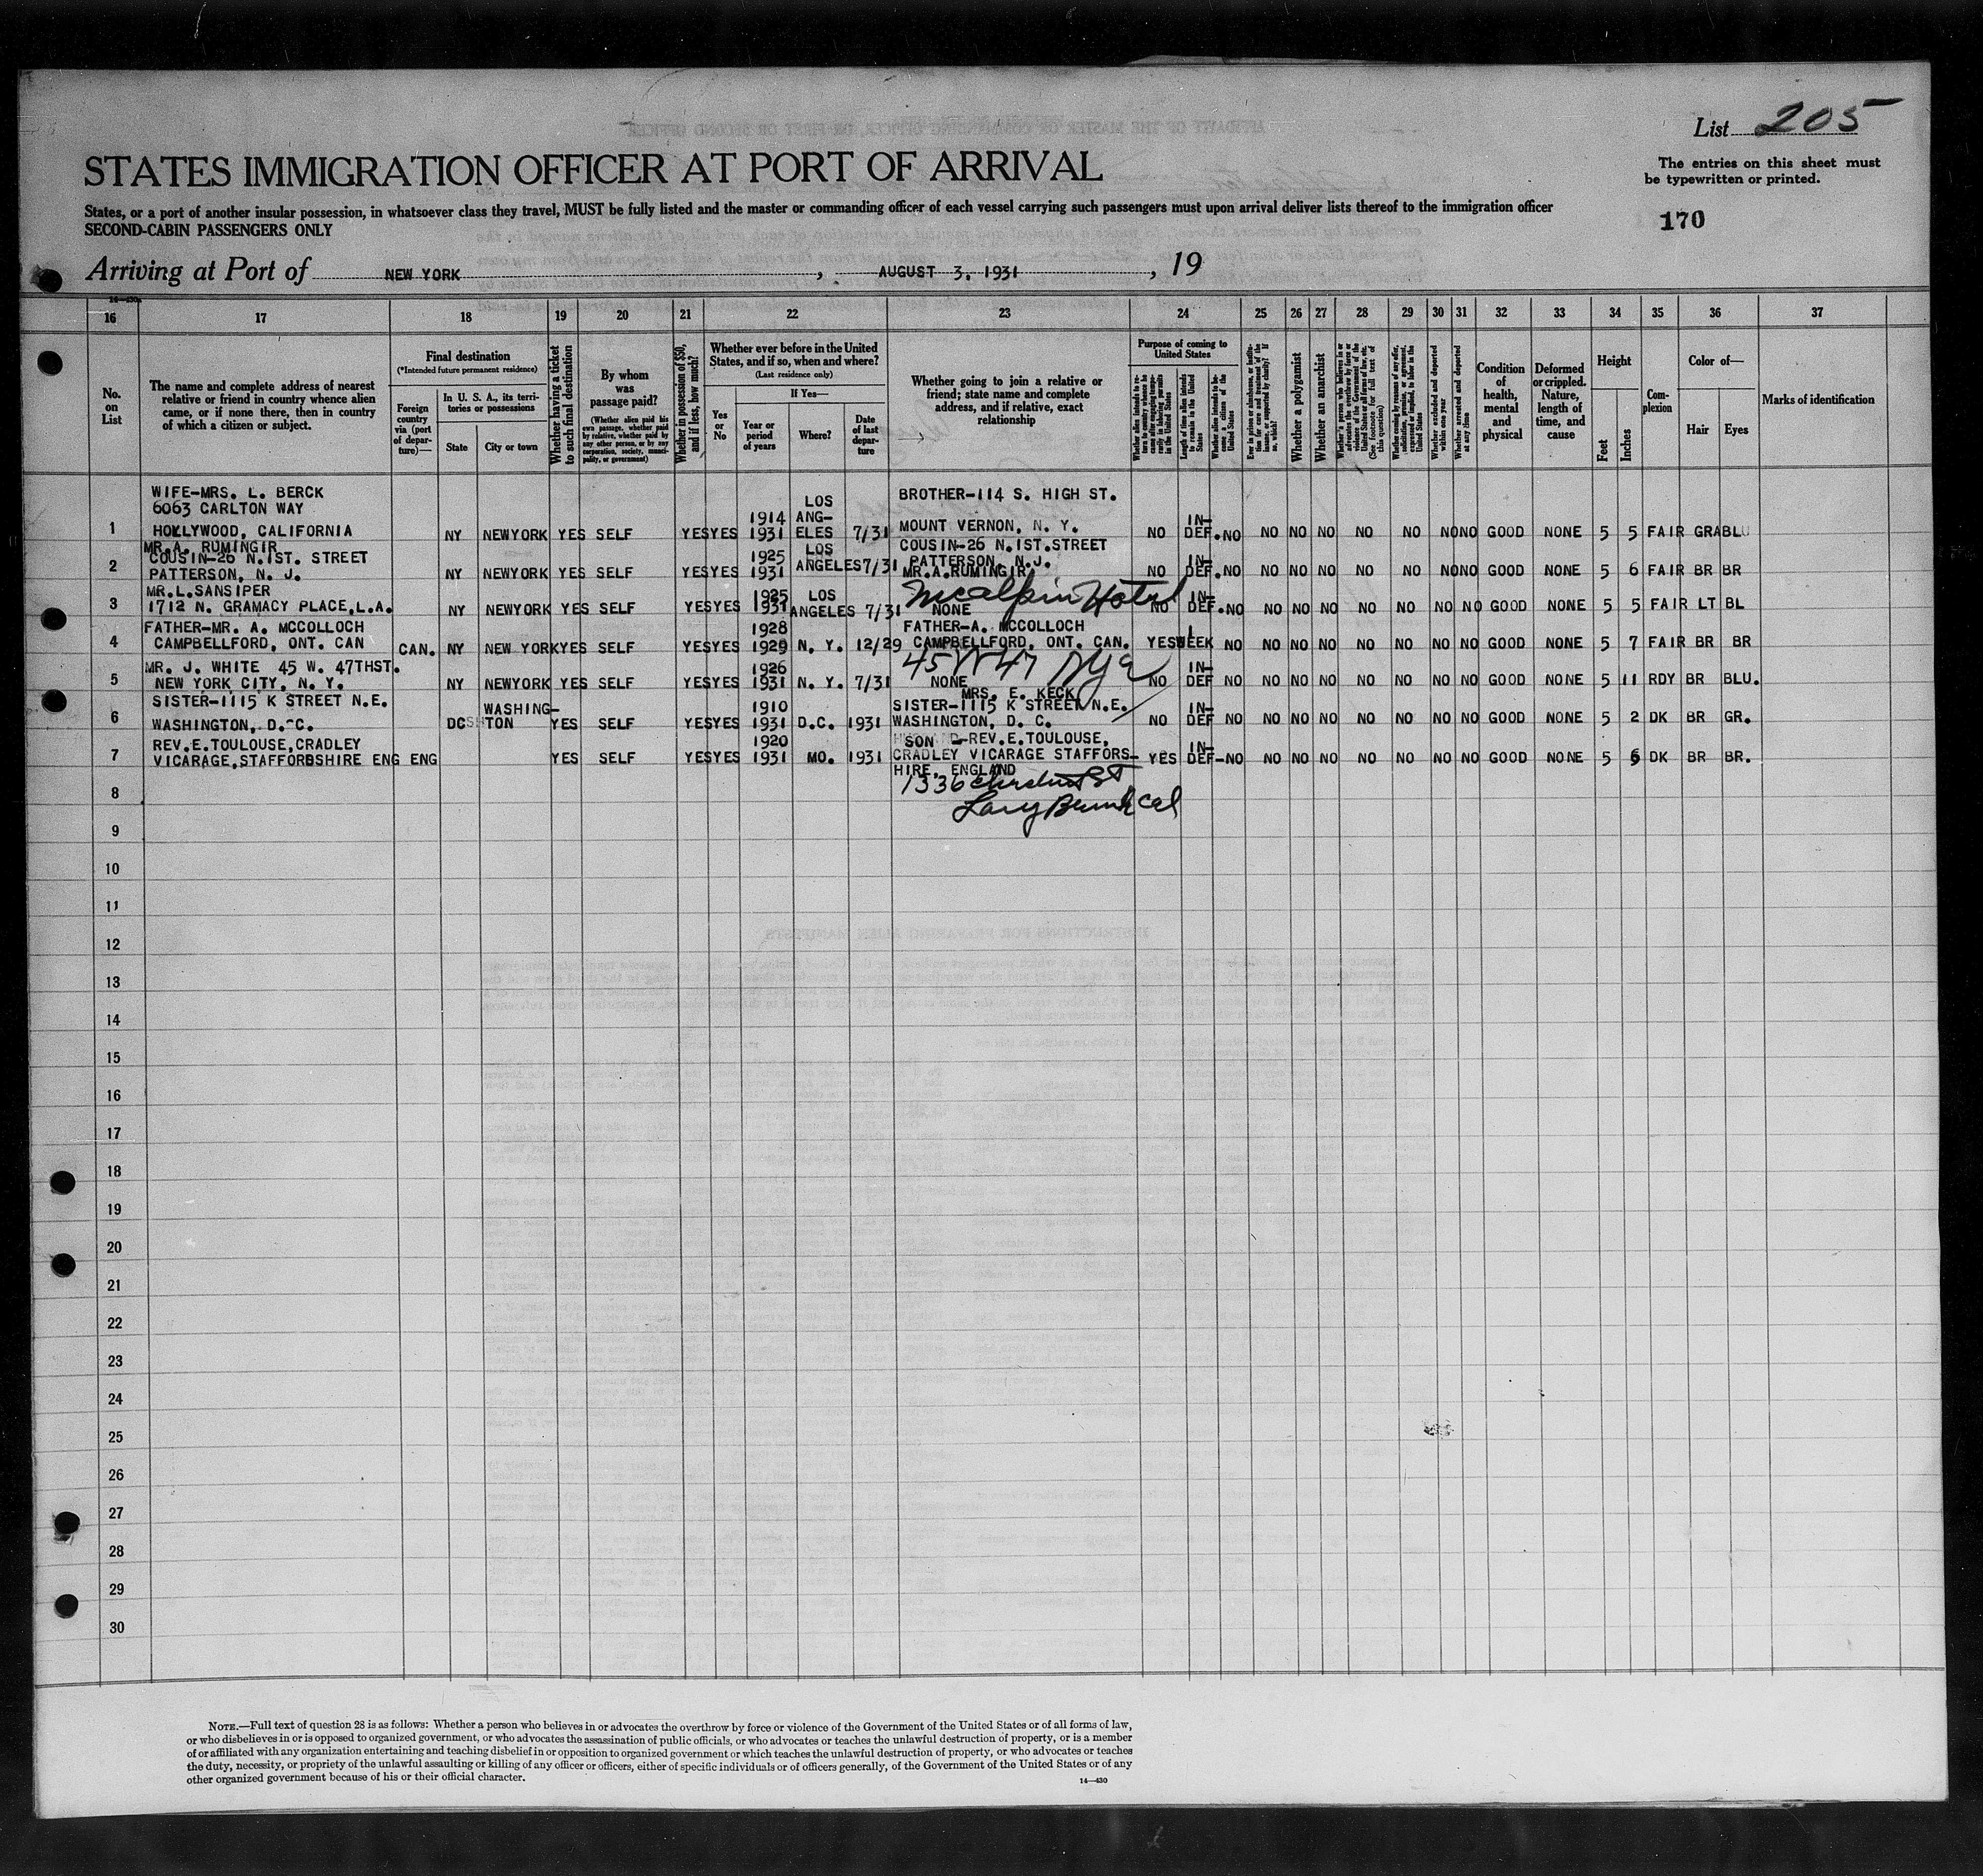 List 205
STATES IMMIGRATION OFFICER AT PORT OF ARRIVAL
The entries on this sheet must
be typewritten or printed.
States, or a port of another insular possession, in whatsoever class they travel, MUST be fully listed and the master or commanding officer of each vessel carrying such passengers must upon arrival deliver lists thereof to the immigration officer
SECOND-CABIN PASSENGERS ONLY
170
Arriving at Port of NEW YORK, AUGUST 3, 1931, 19
14-430
16 17 18 19 20 21 22 23 24 25 26 27 28 29 30 31 32 33 34 35 36 37
No. on List
The name and complete address of nearest
relative or friend in country whence alien
came, or if none there, then in country
of which a citizen or subject.
Final destination
(*Intended future permanent residence)
Foreign country via (port of departure)—
In U. S. A., its territories or possessions
State
City or town
Whether having a ticket to such final destination
By whom was passage paid?
(Whether alien paid his own passage, whether paid by relative, whether paid by any other person, or by any corporation, society, municipality, or government)
Whether in possession of $50, and if less, how much?
Whether ever before in the United
States, and if so, when and where?
(Last residence only)
Yes or No
If Yes—
Year or period of years
Where?
Date of last departure
Whether going to join a relative or
friend; state name and complete
address, and if relative, exact
relationship
Purpose of coming to United States
Length of time alien intends to remain in the United States
Whether alien intends to become a citizen of the United States
Whether a polygamist
Whether an anarchist
Whether excluded and deported within one year
Whether arrested and deported at any time
Condition of health, mental and physical
Deformed or crippled. Nature, length of time, and cause
Height
Feet
Inches
Complexion
Color of—
Hair
Eyes
Marks of identification
WIFE-MRS. L. BERCK
6063 CARLTON WAY LOS BROTHER-114 S. HIGH ST.
1914 ANG- IN-
1 HOLLYWOOD, CALIFORNIA NY NEWYORK YES SELF YES YES 1931 ELES 7/31 MOUNT VERNON, N. Y. NO DEF. NO NO NO NO NO NO NO NO GOOD NONE 5 5 FAIR GRA BLU
MR.A. RUMINGIR
COUSIN-26 N.1ST. STREET 1925 LOS COUSIN-26 N.1ST.STREET
2 PATTERSON, N. J. NY NEWYORK YES SELF YES YES 1931 ANGELES 7/31 PATTERSON, N.J. NO IN-DEF. NO NO NO NO NO NO NO NO GOOD NONE 5 6 FAIR BR BR
MR.A.RUMINGIR
MR.L.SANSIPER 1925 LOS McAlpin Hotel
3 1712 N. GRAMACY PLACE,L.A. NY NEWYORK YES SELF YES YES 1931 ANGELES 7/31 NONE NO IN-DEF. NO NO NO NO NO NO NO NO GOOD NONE 5 5 FAIR LT BL
FATHER-MR. A. MCCOLLOCH 1928 FATHER-A. MCCOLLOCH 1
4 CAMPBELLFORD, ONT. CAN CAN. NY NEW YORK YES SELF YES YES 1929 N. Y. 12/29 CAMPBELLFORD, ONT. CAN. YES WEEK NO NO NO NO NO NO NO NO GOOD NONE 5 7 FAIR BR BR
MR. J. WHITE 45 W. 47THST. 1926 45 W 47 NYC
5 NEW YORK CITY, N. Y. NY NEWYORK YES SELF YES YES 1931 N. Y. 7/31 NONE NO IN-DEF NO NO NO NO NO NO NO NO GOOD NONE 5 11 RDY BR BLU.
MRS. E. KECK
SISTER-1115 K STREET N.E. WASHING- 1910 SISTER-1115 K STREET N.E.
6 WASHINGTON, D.C. DC TON YES SELF YES YES 1931 D.C. 1931 WASHINGTON, D. C. NO IN-DEF NO NO NO NO NO NO NO NO GOOD NONE 5 2 DK BR GR.
REV.E.TOULOUSE,CRADLEY 1920 SON -REV.E.TOULOUSE,
7 VICARAGE,STAFFORDSHIRE ENG ENG YES SELF YES YES 1931 MO. 1931 CRADLEY VICARAGE STAFFORS- YES IN-DEF- NO NO NO NO NO NO NO NO GOOD NONE 5 6 DK BR BR.
HIRE, ENGLAND
8 1336 St
Cal
9
10
11
12
13
14
15
16
17
18
19
20
21
22
23
24
25
26
27
28
29
30
NOTE.—Full text of question 28 is as follows: Whether a person who believes in or advocates the overthrow by force or violence of the Government of the United States or of all forms of law,
or who disbelieves in or is opposed to organized government, or who advocates the assassination of public officials, or who advocates or teaches the unlawful destruction of property, or is a member
of or affiliated with any organization entertaining and teaching disbelief in or opposition to organized government or which teaches the unlawful destruction of property, or who advocates or teaches
the duty, necessity, or propriety of the unlawful assaulting or killing of any officer or officers, either of specific individuals or of officers generally, of the Government of the United States or of any
other organized government because of his or their official character.
14-430